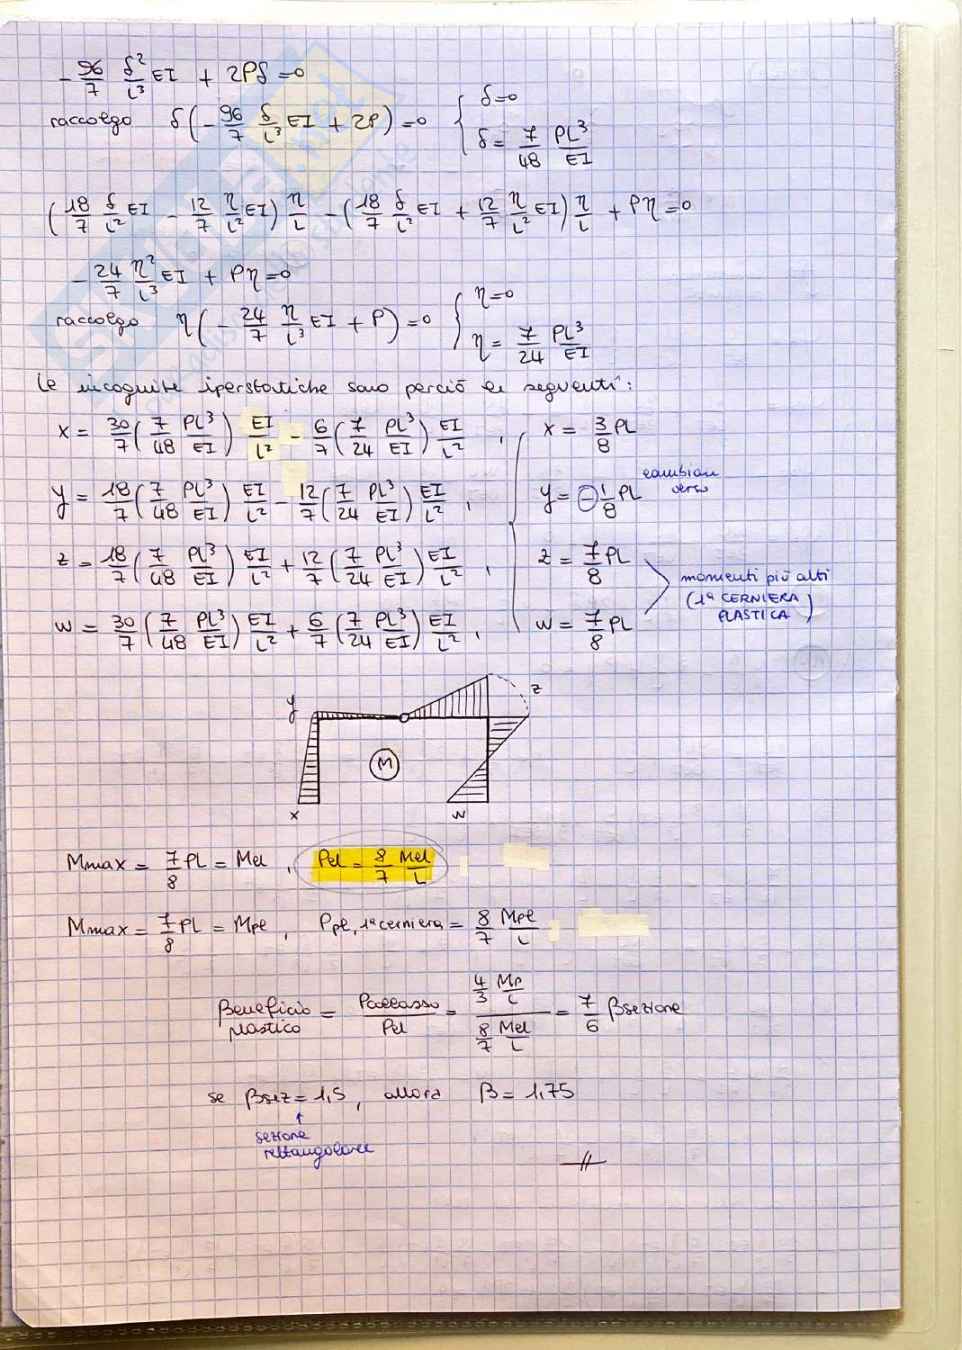 - 96/7 δ²/L³ EI + 2Pδ = 0
raccolgo δ(- 96/7 δ/L³ EI + 2P) = 0 { δ = 0
δ = 7/48 PL³/EI
(18/7 δ/L² EI - 12/7 η/L² EI) η/L - (18/7 δ/L² EI + 12/7 η/L² EI) η/L + Pη = 0
- 24/7 η²/L³ EI + Pη = 0
raccolgo η(- 24/7 η/L³ EI + P) = 0 { η = 0
η = 7/24 PL³/EI
Le incognite iperstatiche sono perciò le seguenti:
x = 30/7 (7/48 PL³/EI) EI/L² - 6/7 (7/24 PL³/EI) EI/L² , x = 3/8 PL
y = 18/7 (7/48 PL³/EI) EI/L² - 12/7 (7/24 PL³/EI) EI/L² , y = - 1/8 PL cambiar verso
z = 18/7 (7/48 PL³/EI) EI/L² + 12/7 (7/24 PL³/EI) EI/L² , z = 7/8 PL
w = 30/7 (7/48 PL³/EI) EI/L² + 6/7 (7/24 PL³/EI) EI/L² , w = 7/8 PL
momenti più alti
(1ª CERNIERA PLASTICA)
y z
M
x w
Mmax = 7/8 PL = Mel , Pel = 8/7 Mel/L
Mmax = 7/8 PL = Mpl , Ppl, 1ª cerniera = 8/7 Mpl/L
βeneficio plastico = Pcollasso/Pel = (4/3 Mp/L)/(8/7 Mel/L) = 7/6 βsezione
se βsez = 1,5 , allora β = 1,75
↑
sezione
rettangolare